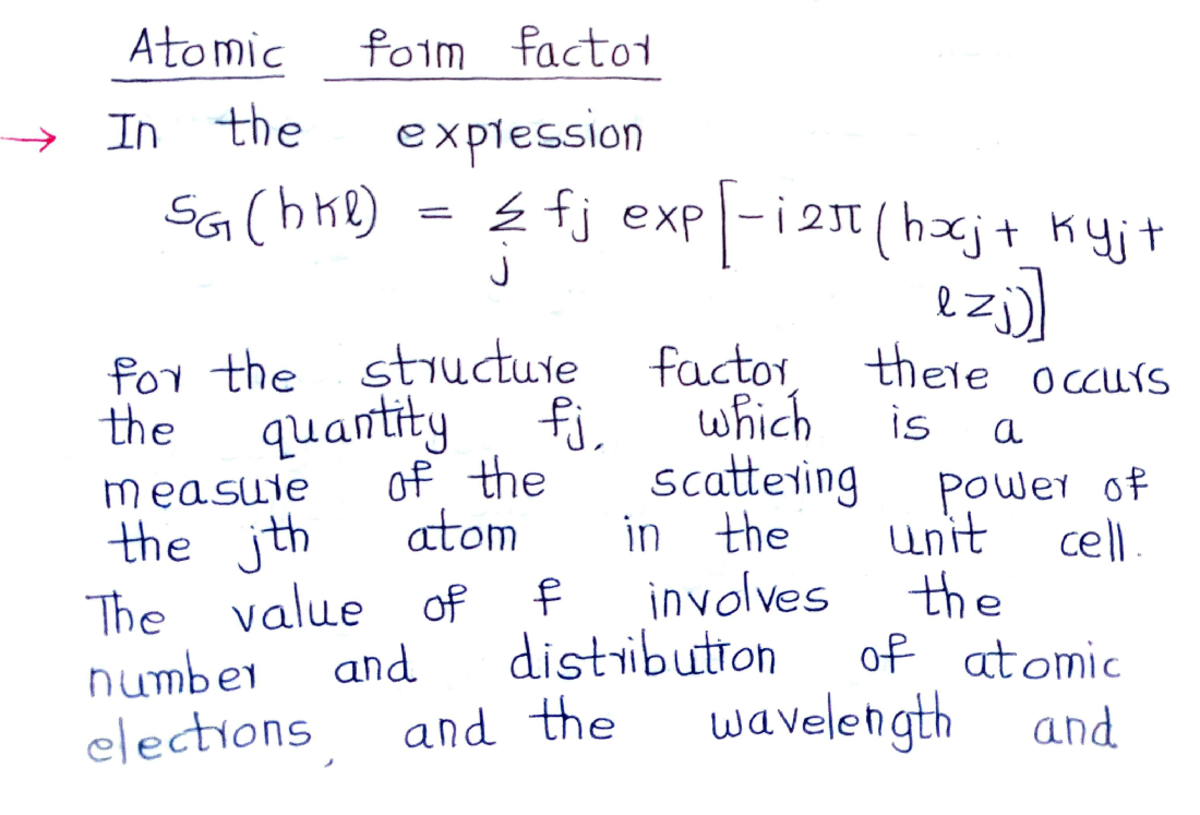 Atomic form factor
→ In the expression
SG(hkl) = Σ fj exp[-i2π(hxj + kyj +
j
lzj)]
for the structure factor, there occurs
the quantity fj, which is a
measure of the scattering power of
the jth atom in the unit cell.
The value of f involves the
number and distribution of atomic
electrons, and the wavelength and